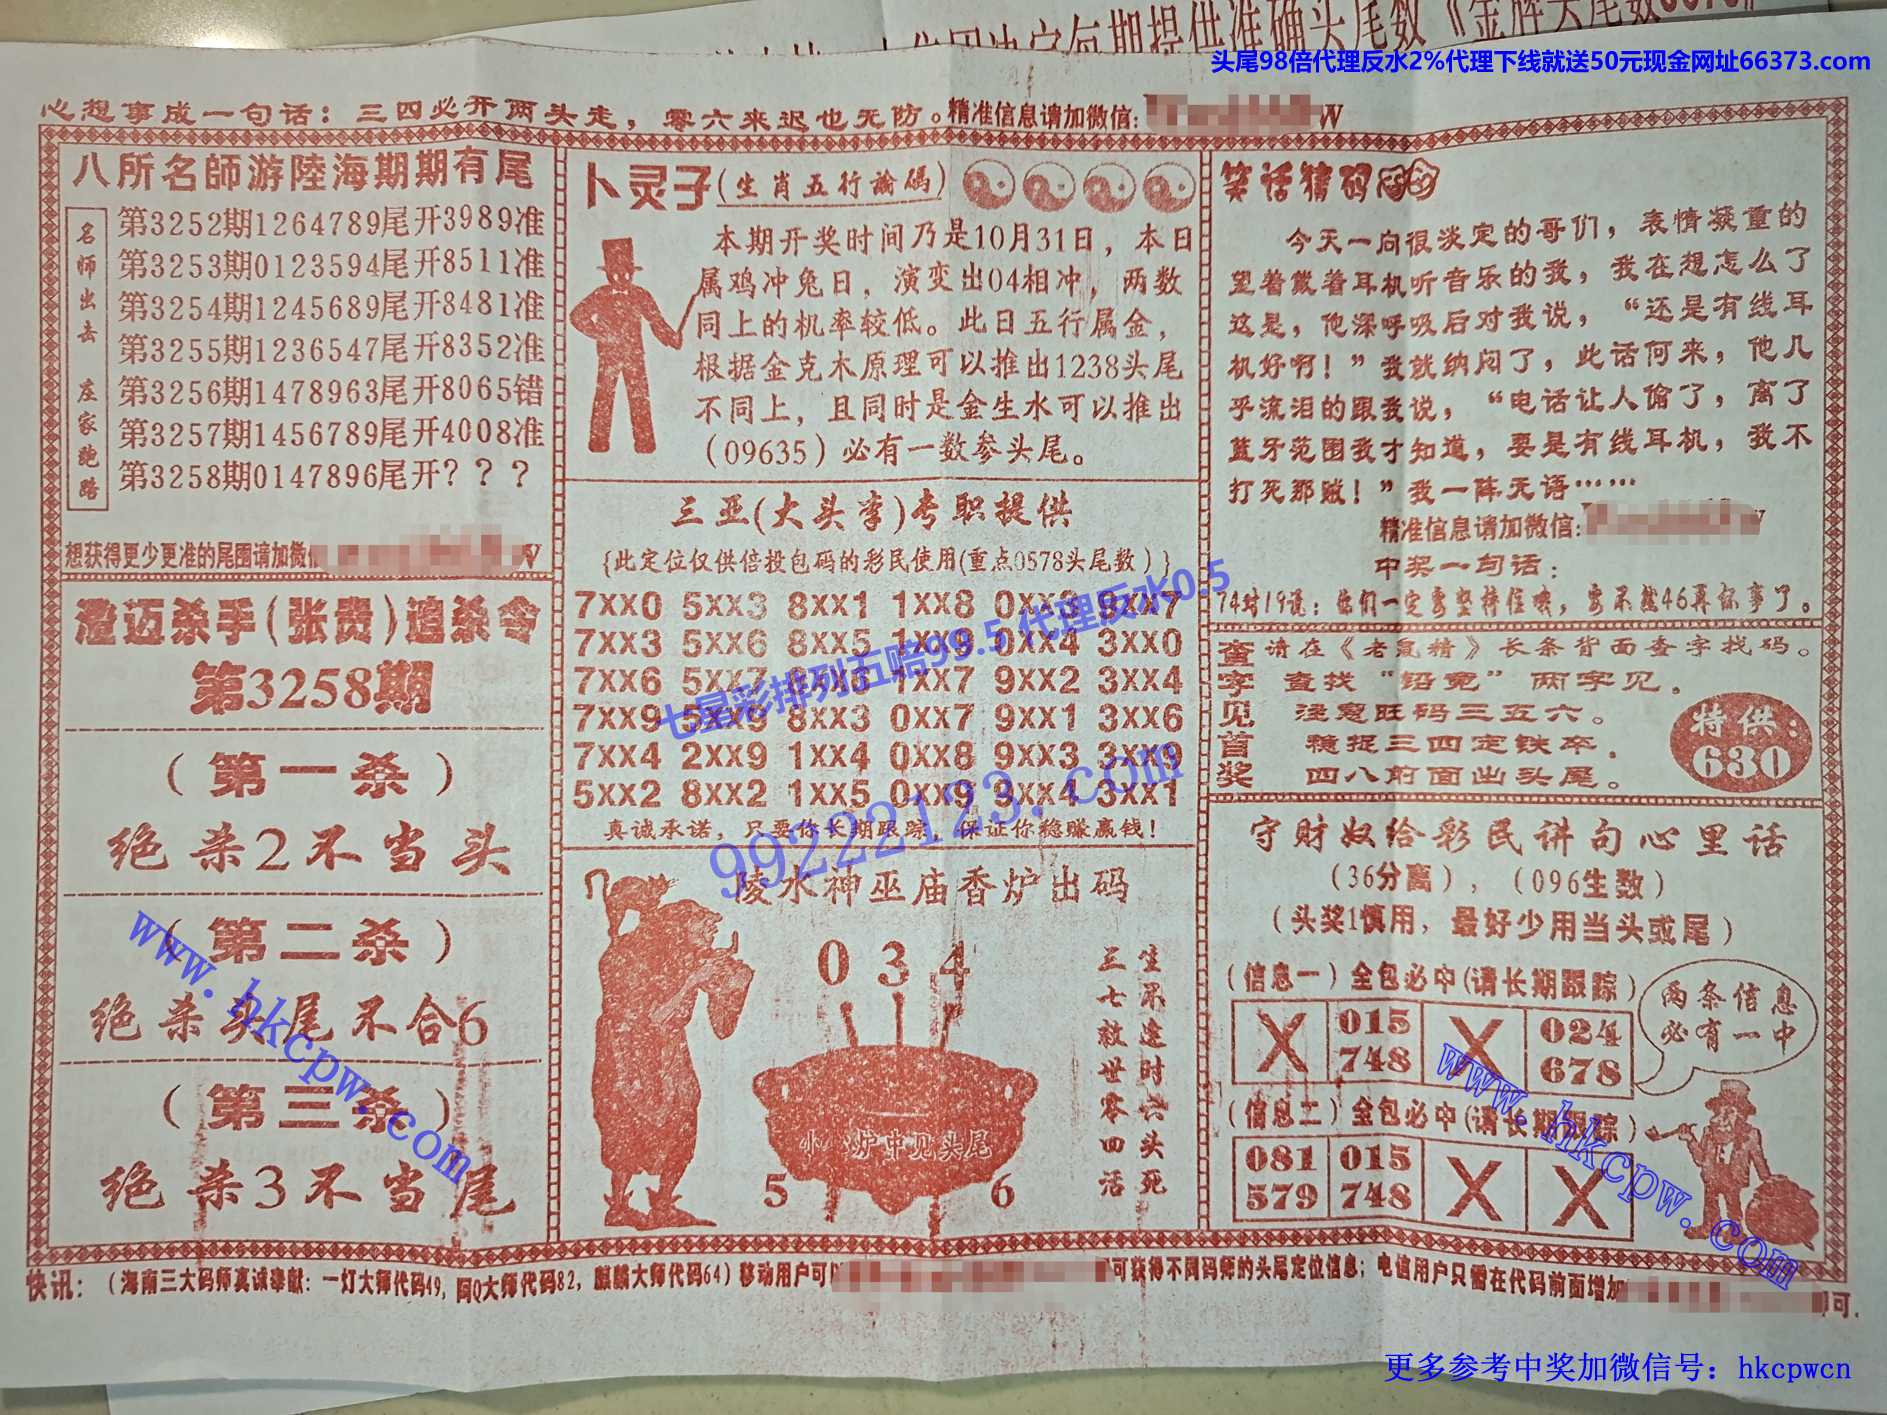 头尾98倍代理反水2%代理下线就送50元现金网址66373.com
心想事成一句话：三四必开两头走，零六来迟也无防。精准信息请加微信:
W
八所名師游陸海期期有尾
名师出击 庄家跑路
第3252期1264789尾开3989准
第3253期0123594尾开8511准
第3254期1245689尾开8481准
第3255期1236547尾开8352准
第3256期1478963尾开8065错
第3257期1456789尾开4008准
第3258期0147896尾开？？？
想获得更少更准的尾围请加微信
澄迈杀手(张贵)追杀令
第3258期
（第一杀）
绝杀2不当头
（第二杀）
绝杀头尾不合6
（第三杀）
绝杀3不当尾
卜灵子(生肖五行谕码)
本期开奖时间乃是10月31日，本日
属鸡冲兔日，演变出04相冲，两数
同上的机率较低。此日五行属金，
根据金克木原理可以推出1238头尾
不同上，且同时是金生水可以推出
（09635）必有一数参头尾。
三亚(大头李)专职提供
{此定位仅供倍投包码的彩民使用(重点0578头尾数)}
7XX0 5XX3 8XX1 1XX8 0XX3 9XX7
7XX3 5XX6 8XX5 1XX9 0XX4 3XX0
7XX6 5XX7 8XX3 1XX7 9XX2 3XX4
7XX9 5XX6 8XX3 0XX7 9XX1 3XX6
7XX4 2XX9 1XX4 0XX8 9XX3 3XX9
5XX2 8XX2 1XX5 0XX9 9XX4 3XX1
真诚承诺，只要你长期跟踪，保证你稳赚赢钱！
七星彩排列五赔99.5代理反水0.5
99222123.com
陵水神巫庙香炉出码
0 3 4
生不逢时六头死
三七救世零四活
炉中见头尾
5 6
笑话猜码
今天一向很淡定的哥们，表情凝重的
望着戴着耳机听音乐的我，我在想怎么了
这是，他深呼吸后对我说，“还是有线耳
机好啊！”我就纳闷了，此话何来，他几
乎流泪的跟我说，“电话让人偷了，离了
蓝牙范围我才知道，要是有线耳机，我不
打死那贼！”我一阵无语……
精准信息请加微信:
中奖一句话：
74对19说：你们一定要坚持住哦，要不然46再你事了。
查字见首奖
请在《老鼠精》长条背面查字找码。
查找“铅宽”两字见.
注意旺码三五六。
稳捉三四定铁卒.
四八前面出头尾。
特供：
630
守财奴给彩民讲句心里话
（36分离），（096生数）
（头奖1慎用，最好少用当头或尾）
（信息一）全包必中(请长期跟踪)
X 015 X 024
748 678
（信息二）全包必中(请长期跟踪)
081 015 X X
579 748
两条信息
必有一中
www.hkcpw.com
www.hkcpw.com
快讯：（海南三大码师真诚奉献：一灯大师代码49,阿Q大师代码82,麒麟大师代码64）移动用户可以
可获得不同码师的头尾定位信息；电信用户只需在代码前面增加
即可.
更多参考中奖加微信号：hkcpwcn